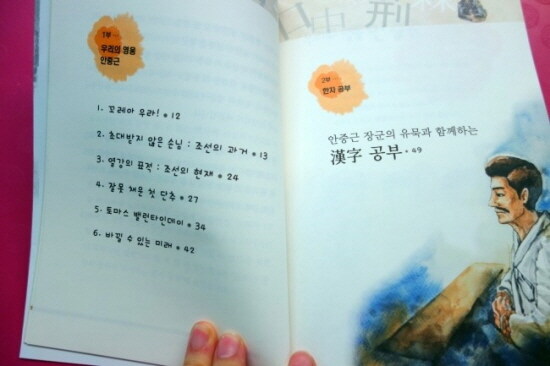 1부
우리의 영웅
안중근
1. 꼬레아 우라! 12
2. 초대받지 않은 손님 : 조선의 과거 13
3. 열강의 표적 : 조선의 현재 24
4. 잘못 채운 첫 단추 27
5. 토마스 밸런타인데이 34
6. 바뀔 수 있는 미래 42
2부
한자 공부
안중근 장군의 유묵과 함께하는
漢字 공부 49
刑